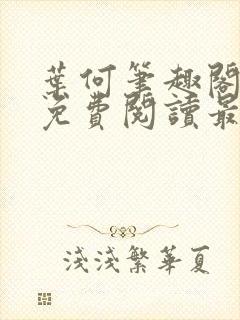 葉何筆趣閣
免費閱讀最
淺淺繁華夏